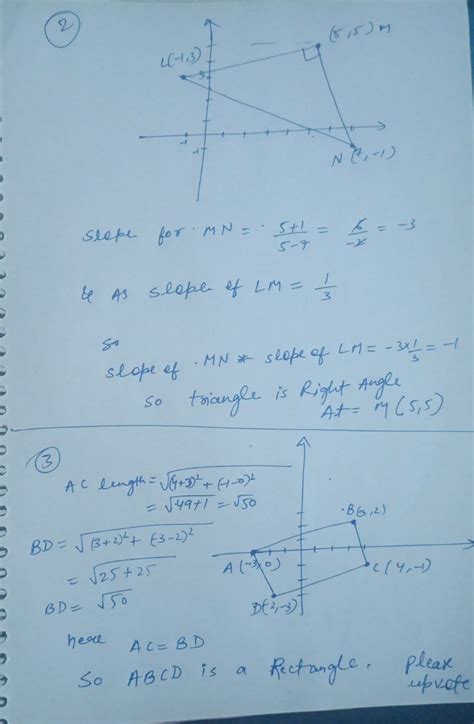 2
(5,5) M
L(-1,3)
3
-1
-1
N (7,-1)
Slope for MN = 5+1/5-7 = 6/-2 = -3
& As slope of LM = 1/3
so
slope of MN * slope of LM = -3×1/3 = -1
So triangle is Right Angle
At = M (5,5)
3
AC length = √(4+3)² + (-1-0)²
= √49+1 = √50
BD = √(3+2)² + (-3-2)²
= √25+25
BD = √50
B(3,2)
A(-3,0)
C(4,-1)
D(-2,-3)
here AC = BD
So ABCD is a Rectangle.
pleax
upvote